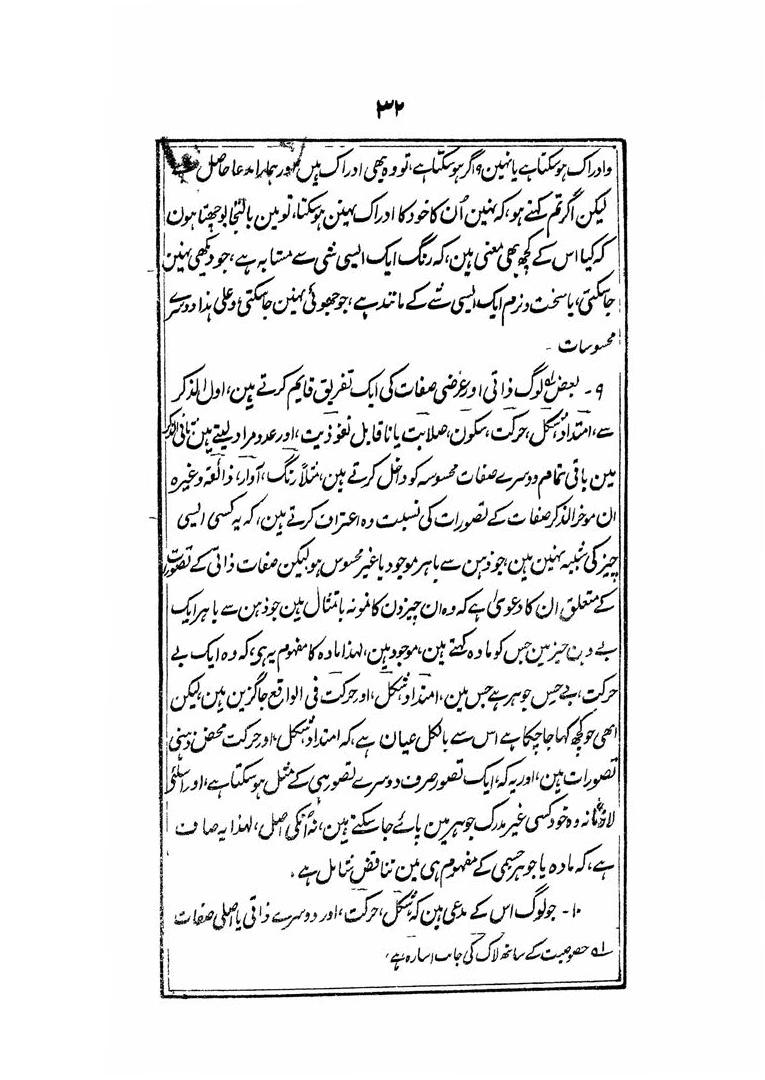 ۳۲
وادراک ہوسکتا ہے یا نہین؟ اگر ہوسکتا ہے، تو وہ بھی ادراک ہین اور ہمارا مدعا حاصل ہے
لیکن اگر تم کہتے ہو، کہ نہین اُن کا خود کا ادراک نہین ہوسکتا، تو مین بالتجا پوچھتا ہون
کہ کیا اس کے کچھ بھی معنی ہین، کہ رنگ ایک ایسی شی سے مشابہ ہے، جو دیکھی نہین
جاسکتی، یا سخت و نرم ایک ایسی شے کے مانند ہے، جو چھوئی نہین جاسکتی؟ وعلی ہذا دوسرے
محسوسات -
۹- بعض لوگ ذاتی اور عرضی صفات کی ایک تفریق قایم کرتے ہین، اول الذکر
سے، امتداد، شکل، حرکت، سکون، صلابت یا ناقابل نفوذیت، اور عدد مراد لیتے ہین، ثانی الذکر
مین باقی تمام دوسرے صفات محسوسہ کو داخل کرتے ہین، مثلاً رنگ، آواز، ذائقہ وغیرہ
ان موخر الذکر صفات کے تصورات کی نسبت وہ اعتراف کرتے ہین، کہ یہ کسی ایسی
چیز کی شبیہ نہین ہین، جو ذہن سے باہر موجود یا غیر محسوس ہو لیکن صفات ذاتی کے تصورات
کے متعلق ان کا دعویٰ ہے کہ وہ ان چیزون کا نمونہ یا تمثال ہین جو ذہن سے باہر ایک
بے ذہن چیز مین جس کو مادہ کہتے ہین، موجود ہین، لہذا مادہ کا مفہوم یہ ہی، کہ وہ ایک بے
حرکت، بے حس جوہر ہے جس مین، امتداد، شکل، اور حرکت فی الواقع جاگزین ہین، لیکن
ابھی جو کچھ کہا جاچکا ہے اس سے بالکل عیان ہے، کہ امتداد، شکل، اور حرکت محض ذہنی
تصورات ہین، اور یہ کہ، ایک تصور صرف دوسرے تصور ہی کے مثل ہوسکتا ہے، اور اسلئے
لامحالہ نہ وہ خود کسی غیر مدرک جوہر مین پائے جاسکتے ہین، نہ انکی اصل، لہذا یہ صاف
ہے، کہ مادہ یا جوہر جسمی کے مفہوم ہی مین تناقض شامل ہے۔
۱۰- جو لوگ اس کے مدعی ہین کہ شکل، حرکت، اور دوسرے ذاتی یا اصلی صفات
لہ خصوصیت کے ساتھ لاک کی جانب اشارہ ہے،